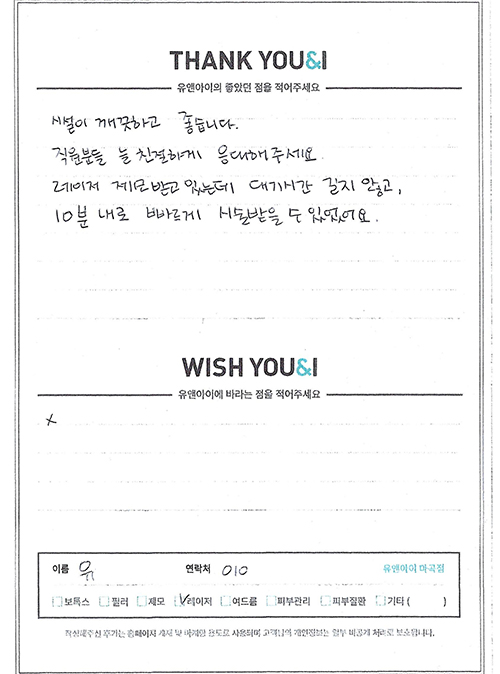 THANK YOU&I
유앤아이의 좋았던 점을 적어주세요
시설이 깨끗하고 좋습니다.
직원분들 늘 친절하게 응대해주세요.
레이저 제모받고 있는데 대기시간 길지 않고,
10분 내로 빠르게 시술받을 수 있었어요.
WISH YOU&I
유앤아이에 바라는 점을 적어주세요
x
이름 유 연락처 010 유앤아이 마곡점
보톡스 필러 제모 레이저 여드름 피부관리 피부질환 기타 ( )
작성해주신 후기는 홈페이지 게재 및 마케팅 용도로 사용되며 고객님의 개인정보는 일부 비공개 처리로 보호됩니다.